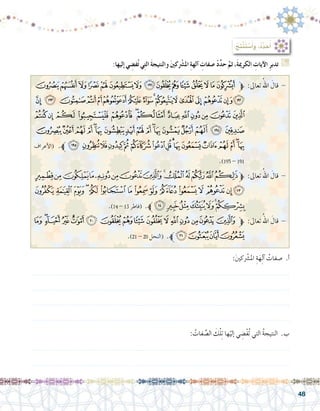 أُحَدِّدُ، وَأَسْتَنْتِجُ
تدبر الآيات الكريمة، ثمّ حدّد صفات آلهة المشركين والنتيجة التي تُفضي إليها:
- قال اللهُ تعالى: ﴿ أَيُشْرِكُونَ مَا لَا يَخْلُقُ شَيْئًا وَهُمْ يُخْلَقُونَ ١٩١ وَلَا يَسْتَطِيعُونَ لَهُمْ نَصْرًا وَلَا أَنفُسَهُمْ يَنصُرُونَ
١٩٢ وَإِن تَدْعُوهُمْ إِلَى الْهُدَىٰ لَا يَتَّبِعُوكُمْ سَوَاءٌ عَلَيْكُمْ أَدَعَوْتُمُوهُمْ أَمْ أَنتُمْ صَامِتُونَ ١٩٣ إِنَّ
الَّذِينَ تَدْعُونَ مِن دُونِ اللَّهِ عِبَادٌ أَمْثَالُكُمْ فَادْعُوهُمْ فَلْيَسْتَجِيبُوا لَكُمْ إِن كُنتُمْ
صَادِقِينَ ١٩٤ أَلَهُمْ أَرْجُلٌ يَمْشُونَ بِهَا أَمْ لَهُمْ أَيْدٍ يَبْطِشُونَ بِهَا أَمْ لَهُمْ أَعْيُنٌ يُبْصِرُونَ
بِهَا أَمْ لَهُمْ آذَانٌ يَسْمَعُونَ بِهَا قُلِ ادْعُوا شُرَكَاءَكُمْ ثُمَّ كِيدُونِ فَلَا تُنظِرُونِ ١٩٥ ﴾. (الأعراف
191 – 195).
- قال اللهُ تعالى: ﴿ ذَٰلِكُمُ اللَّهُ رَبُّكُمْ لَهُ الْمُلْكُ وَالَّذِينَ تَدْعُونَ مِن دُونِهِ مَا يَمْلِكُونَ مِن قِطْمِيرٍ
١٣ إِن تَدْعُوهُمْ لَا يَسْمَعُوا دُعَاءَكُمْ وَلَوْ سَمِعُوا مَا اسْتَجَابُوا لَكُمْ وَيَوْمَ الْقِيَامَةِ يَكْفُرُونَ
بِشِرْكِكُمْ وَلَا يُنَبِّئُكَ مِثْلُ خَبِيرٍ ١٤ ﴾. (فاطر 13 – 14).
- قال اللهُ تعالى: ﴿ وَالَّذِينَ يَدْعُونَ مِن دُونِ اللَّهِ لَا يَخْلُقُونَ شَيْئًا وَهُمْ يُخْلَقُونَ ٢٠ أَمْوَاتٌ غَيْرُ أَحْيَاءٍ وَمَا
يَشْعُرُونَ أَيَّانَ يُبْعَثُونَ ٢١ ﴾. (النحل 20 – 21).
أ. صفاتُ آلهةِ المشركين:
ب. النتيجةُ التي تُفضي إليها تلكَ الصِّفاتُ:
48